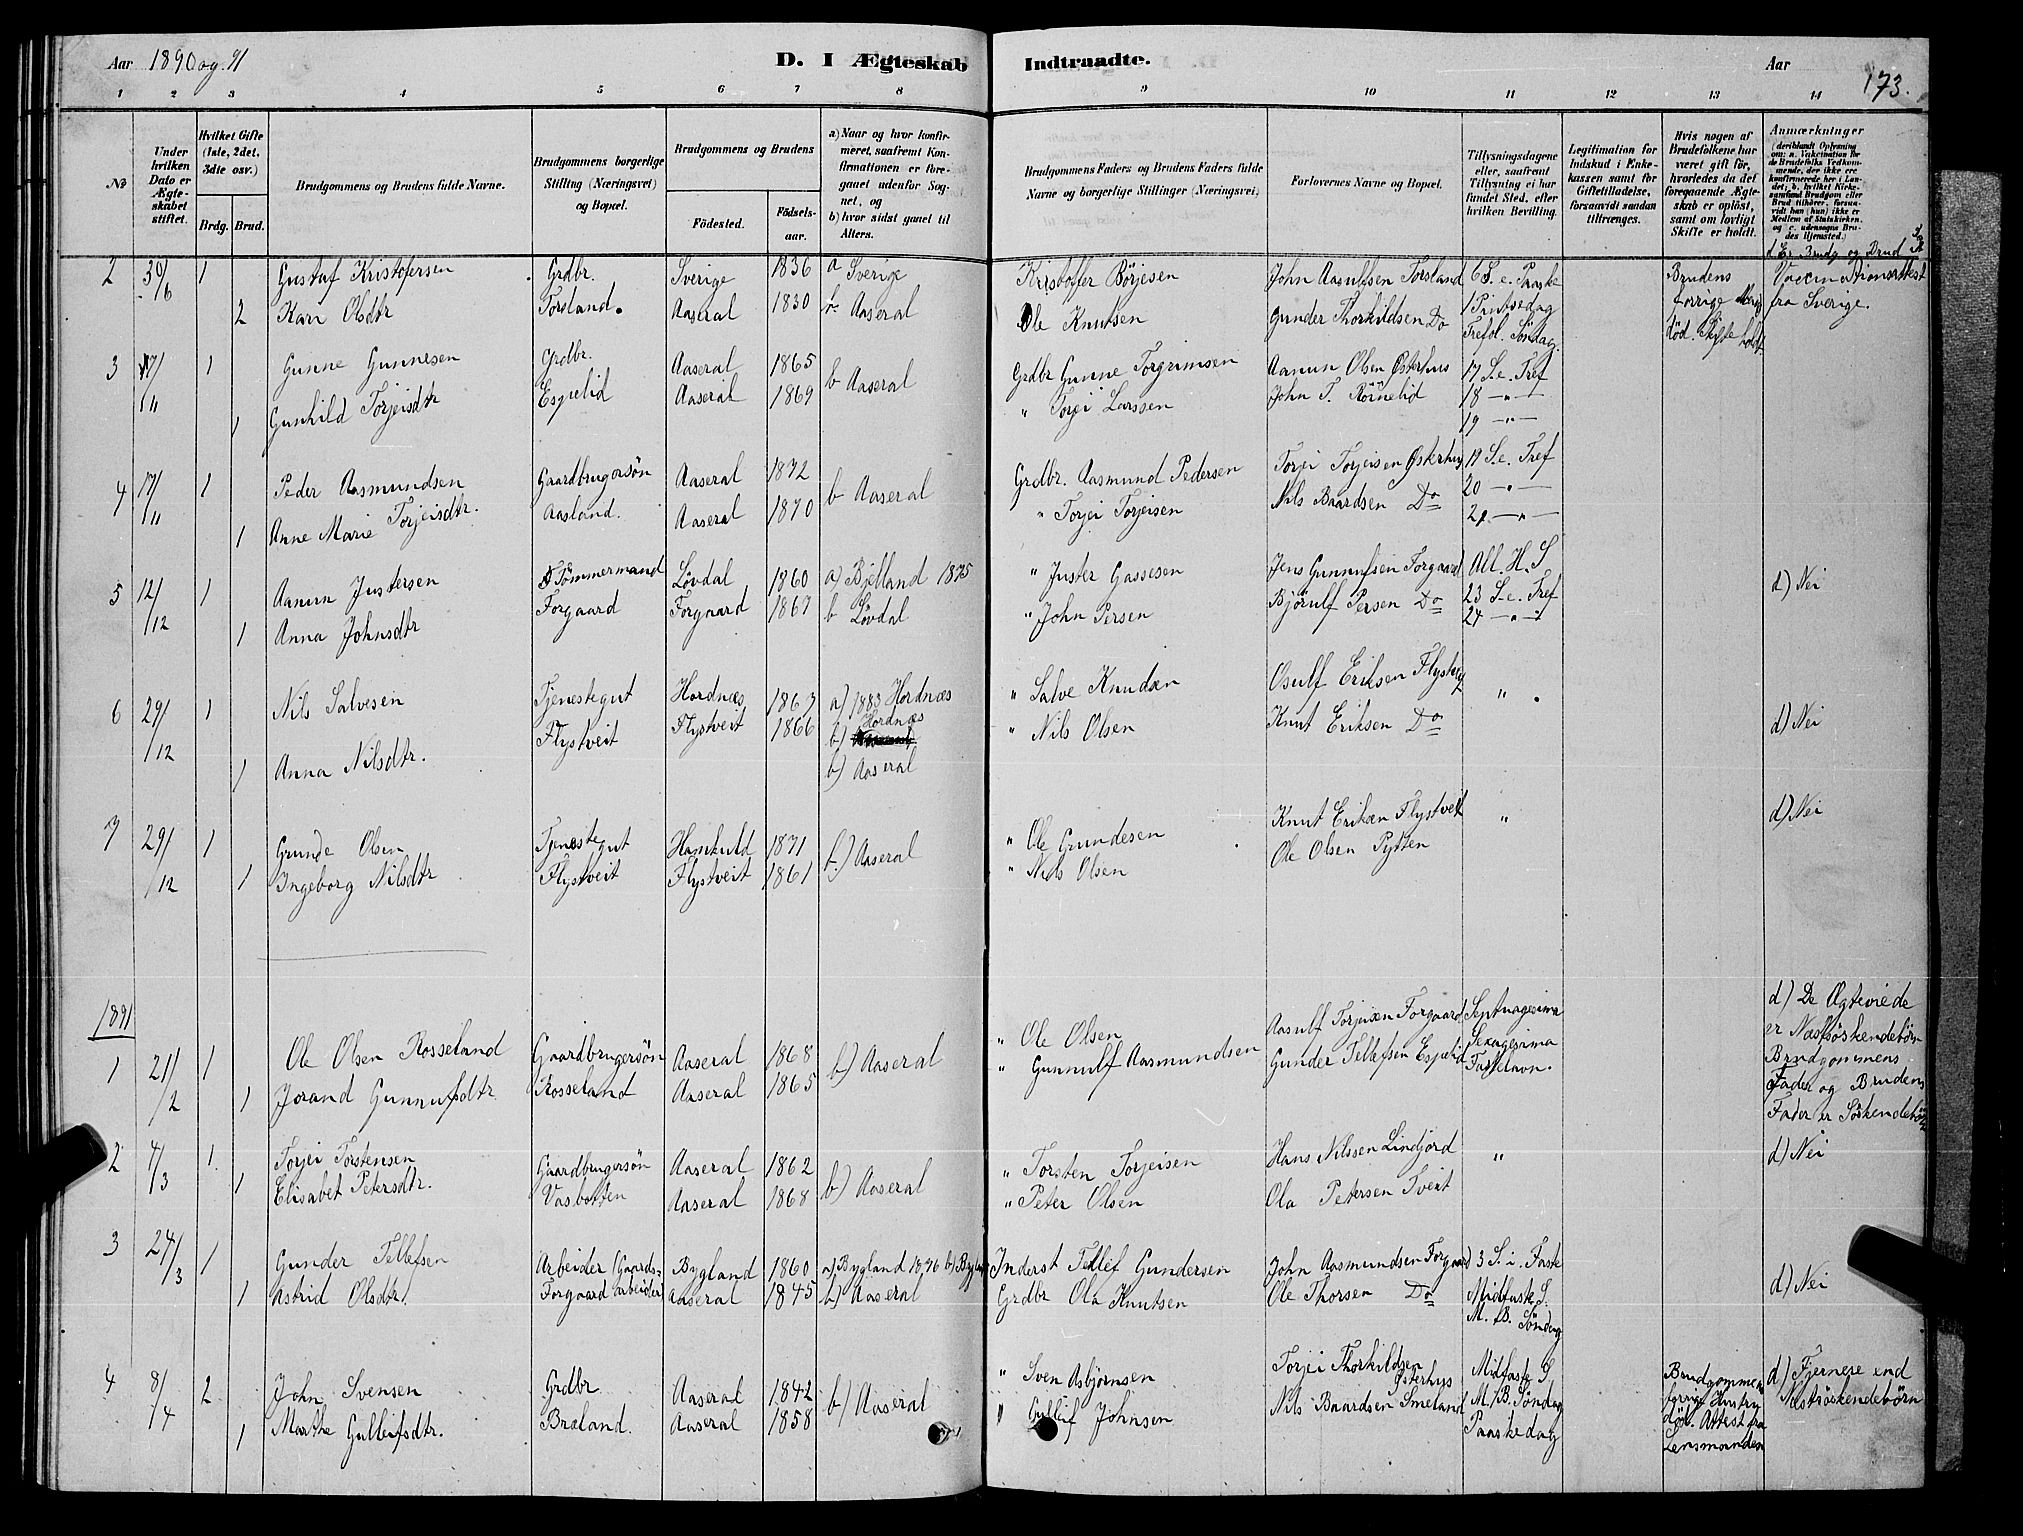 Aar 1890 og 91
D. I Ægteskab Indtraadte.
Aar
173.
1 2 3 4 5 6 7 8 9 10 11 12 13 14
No
Under hvilken Dato er Ægteskabet stiftet.
Hvilket Gifte (1ste, 2det, 3die osv.)
Brdg. Brud.
Brudgommens og Brudens fulde Navne.
Brudgommens borgerlige Stilling (Næringsvei) og Bopæl.
Brudgommens og Brudens
Födested.
Födselsaar.
a) Naar og hvor konfirmeret, saafremt Konfirmationen er foregaaet udenfor Sognet, og
b) hvor sidst gaaet til Alters.
Brudgommens Faders og Brudens Faders fulde Navne og borgerlige Stillinger (Næringsvei)
Forlovernes Navne og Bopæl.
Tillysningsdagene eller, saafremt Tillysning ei har fundet Sted, efter hvilken Bevilling.
Legitimation for Indskud i Enkekassen samt for Giftetilladelse, forsaavidt saadan tiltrænges.
Hvis nogen af Brudefolkene har været gift før, hvorledes da det foregaaende Ægteskab er oplöst, samt om lovligt Skifte er holdt.
Anmærkninger (deriblandt Oplysning om: a. Vakcination for de Brudefolks Vedkommende, der ikke ere konfirmerede her i Landet; b. hvilket Kirkesamfund Brudgom eller Brud tilhörer, forsaavidt han (hun) ikke er Medlem af Statskirken, og c. udensogns Brudes Hjemsted.)
d Er Brudg og Brud
2 30/6 1 Gustaf Kristofersen Grdbr. Sverige 1836 a Sverige Kristoffer Börjesen John Aasulfsen Torsland 6 S. e. Paaske Brudens Vaccinationsattest
2 Kari Olsdtr Torsland. Aaseral 1830 b. Aaseral Ole Knutsen Gunder Thorkildsen Do 1 Pintsedag forrige fra Sverige.
Trefol. Söndag död. Skifte holdt
3 17/11 1 Gunne Gunnesen Grdbr. Aaseral 1865 b Aaseral Grdbr Gunne Torgrimsen Aanun Olsen Østerhus 17 S. e. Tref
1 Gunhild Torjeisdtr Espelid Aaseral 1869 " Torjei Larssen John T. Rörnelid 18 —"—
19 —"—
4 17/11 1 Peder Aasmundsen Gaardbrugersön Aaseral 1872 b Aaseral Grdbr. Aasmund Pedersen Torjei Torjeisen Østerhus 19 S. e. Tref
1 Anne Marie Torjeisdtr. Aasland. Aaseral 1870 " Torjei Torjeisen Nils Baardsen Do 20 —"—
21 —"—
5 12/12 1 Aanun Justersen Tömmermand Lövdal 1860 a) Bjelland 1875 " Juster Gassesen Jens Gunnufsen Forgaard All. H. S d) Nei
1 Anna Johnsdtr Forgaard Forgaard 1867 b Lövdal " John Persen Björulf Persen Do 23 S. e. Tref
24 —"—
6 29/12 1 Nils Salvesen Tjenestegut Hordnæs 1863 a) 1883 Hordnæs " Salve Knudsen Osulf Eriksen Flystveit " d) Nei
1 Anna Nilsdtr. Flystveit Flystveit 1866 b) Hordnæs " Nils Olsen Knut Eriksen Do
b) Aaseral
7 29/12 1 Grunde Olsen Tjenestegut Hamkuld 1871 b) Aaseral " Ole Grundesen Knut Eriksen Flystveit " d) Nei
1 Ingeborg Nilsdtr Flystveit Flystveit 1861 " Nils Olsen Ole Olsen Pytten
1891
1 21/2 1 Ole Olsen Rosseland Gaardbrugersön Aaseral 1868 b) Aaseral " Ole Olsen Aasulf Torjeisen Forgaard Septuagesima d) De Ægteviede
1 Jorand Gunnufsdtr Rosseland Aaseral 1865 " Gunnulf Aasmundsen Gunder Tellefsen Espelid Sexagesima er Næstsöskendebörn
Fastelavn. Brudgommens
Fader og Brudens
Fader er Söskendebörn
2 4/3 1 Torjei Torstensen Gaardbrugersön Aaseral 1862 b) Aaseral " Torsten Torjeisen Hans Nilssen Lindjord " d) Nei
1 Elisabet Petersdtr. Vasbotten Aaseral 1868 " Peter Olsen Ola Petersen Tveit
3 24/3 1 Gunder Tellefsen Arbeider (Gaards- Bygland 1860 a) Bygland 1876 b) Bygland Inderst Tellef Gundersen John Aasmundsen Forgaard 3 S. i. Faste d) Nei
1 Astrid Olsdtr. Forgaard arbeider) Aaseral 1845 b) Aaseral Grdbr Ola Knutsen Ole Thorsen Do Midfaste S.
M. B. Söndag
4 8/4 2 John Svensen Grdbr Aaseral 1842 b) Aaseral " Sven Asbjörnsen Torjei Thorkildsen Østerhus Midfaste S. Brudgommens d) Fjernere end
1 Marthe Gulleifsdtr. Braland. Aaseral 1858 " Gulleif Johnsen Nils Baardsen Smeland M. B. Söndag forrige Hustru Næstsöskendebörn
Paaskedag död. Attest fra
Lensmanden